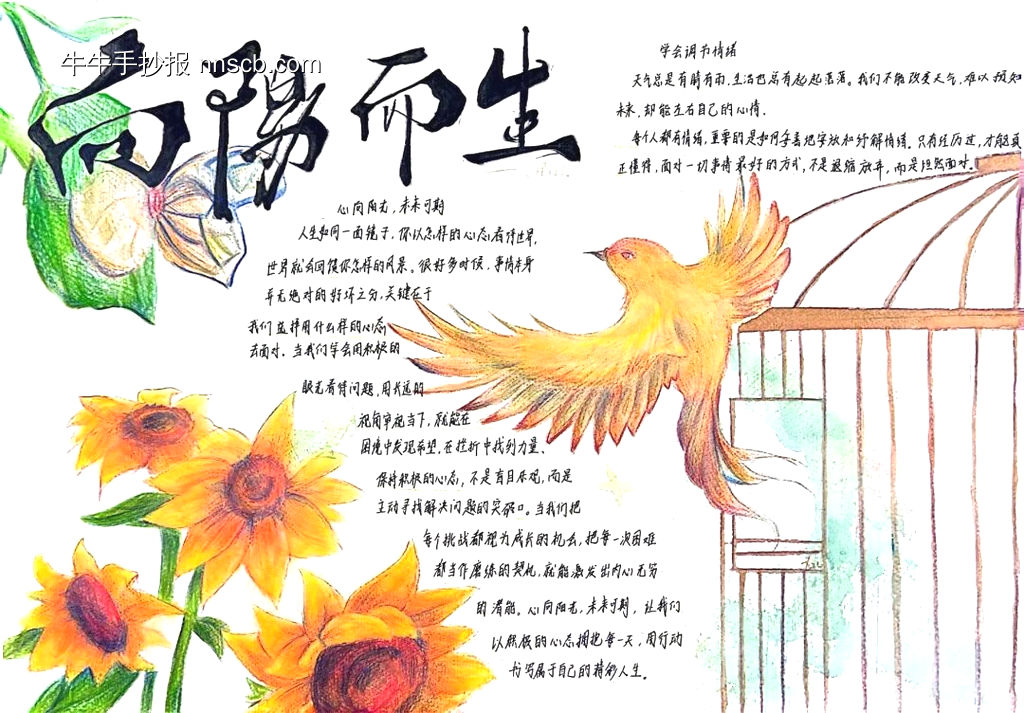 牛牛手抄报 nnscb.com
向陽而生
学会调节情绪
天气总是有晴有雨,生活也总有起起落落。我们不能改变天气,难以预知
未来,却能左右自己的心情.
每个人都有情绪,重要的是如何妥善把安放和纾解情绪.只有经历过,才能真
正懂得,面对一切事情最好的方式,不是退缩放弃,而是坦然面对.
心向阳光,未来可期
人生如同一面镜子,你以怎样的心态看待世界,
世界就会回馈你怎样的风景。很好多时候,事情本身
并无绝对的好坏之分,关键在于
我们选择用什么样的心态
去面对.当我们学会用积极的
眼光看待问题,用长远的
视角审视当下,就能在
困境中发现希望,在挫折中找到力量.
保持积极的心态,不是盲目乐观,而是
主动寻找解决问题的突破口。当我们把
每个挑战都视为成长的机会,把每一次困难
都当作磨练的契机,就能激发出内心无穷
的潜能。心向阳光,未来可期,让我们
以积极的心态拥抱每一天,用行动
书写属于自己的精彩人生。